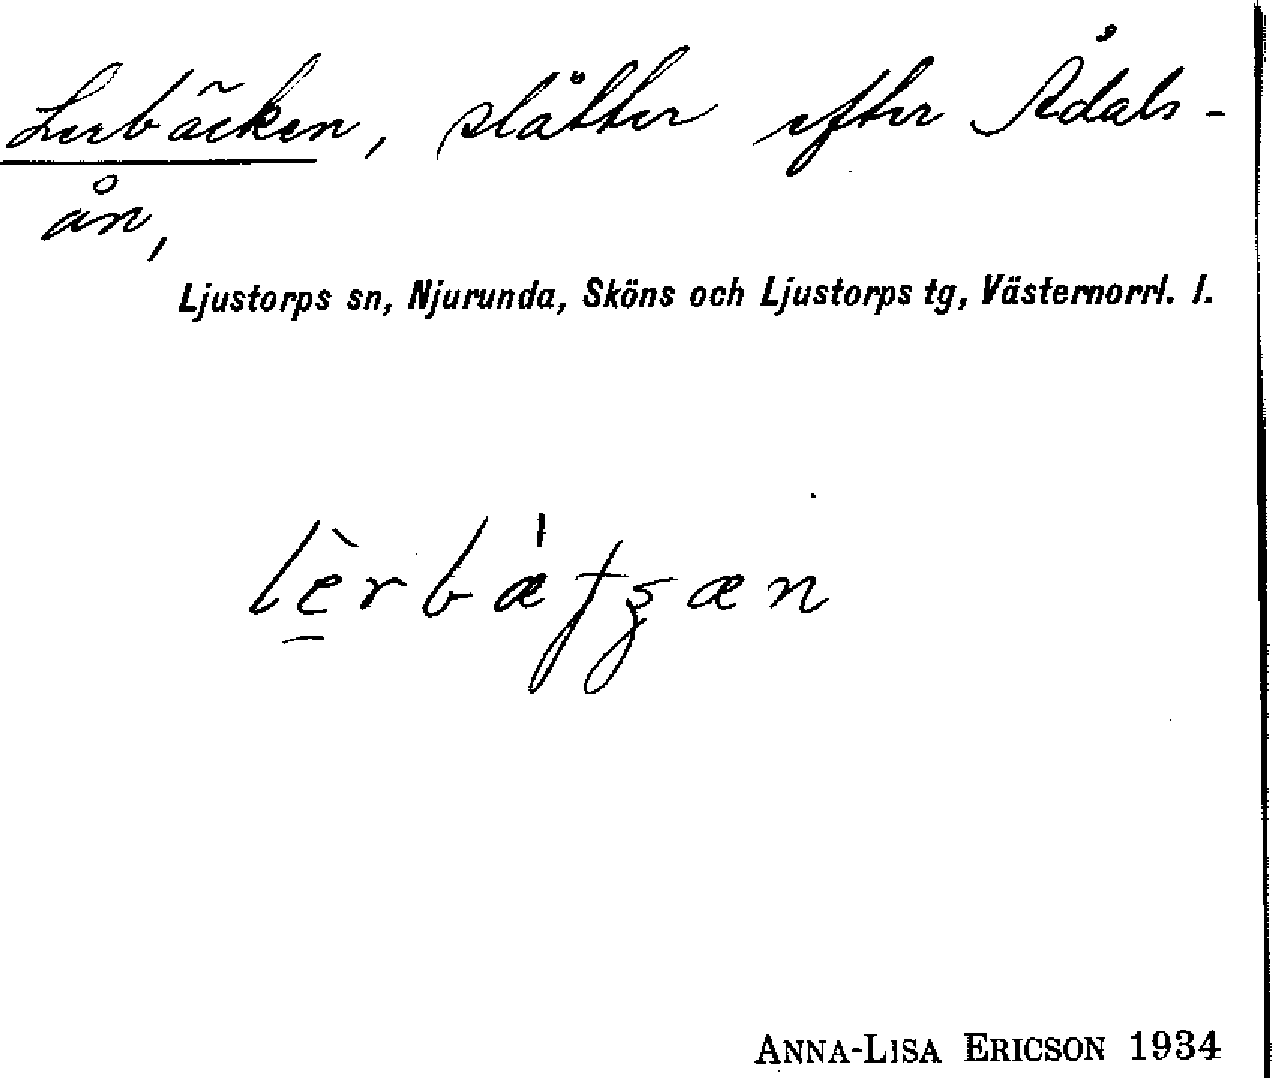 Lerbäcken, slåtter efter Ådals-
ån,
Ljustorps sn, Njurunda, Sköns och Ljustorps tg, Västernorrl. l.
ANNA-LISA ERICSON 1934